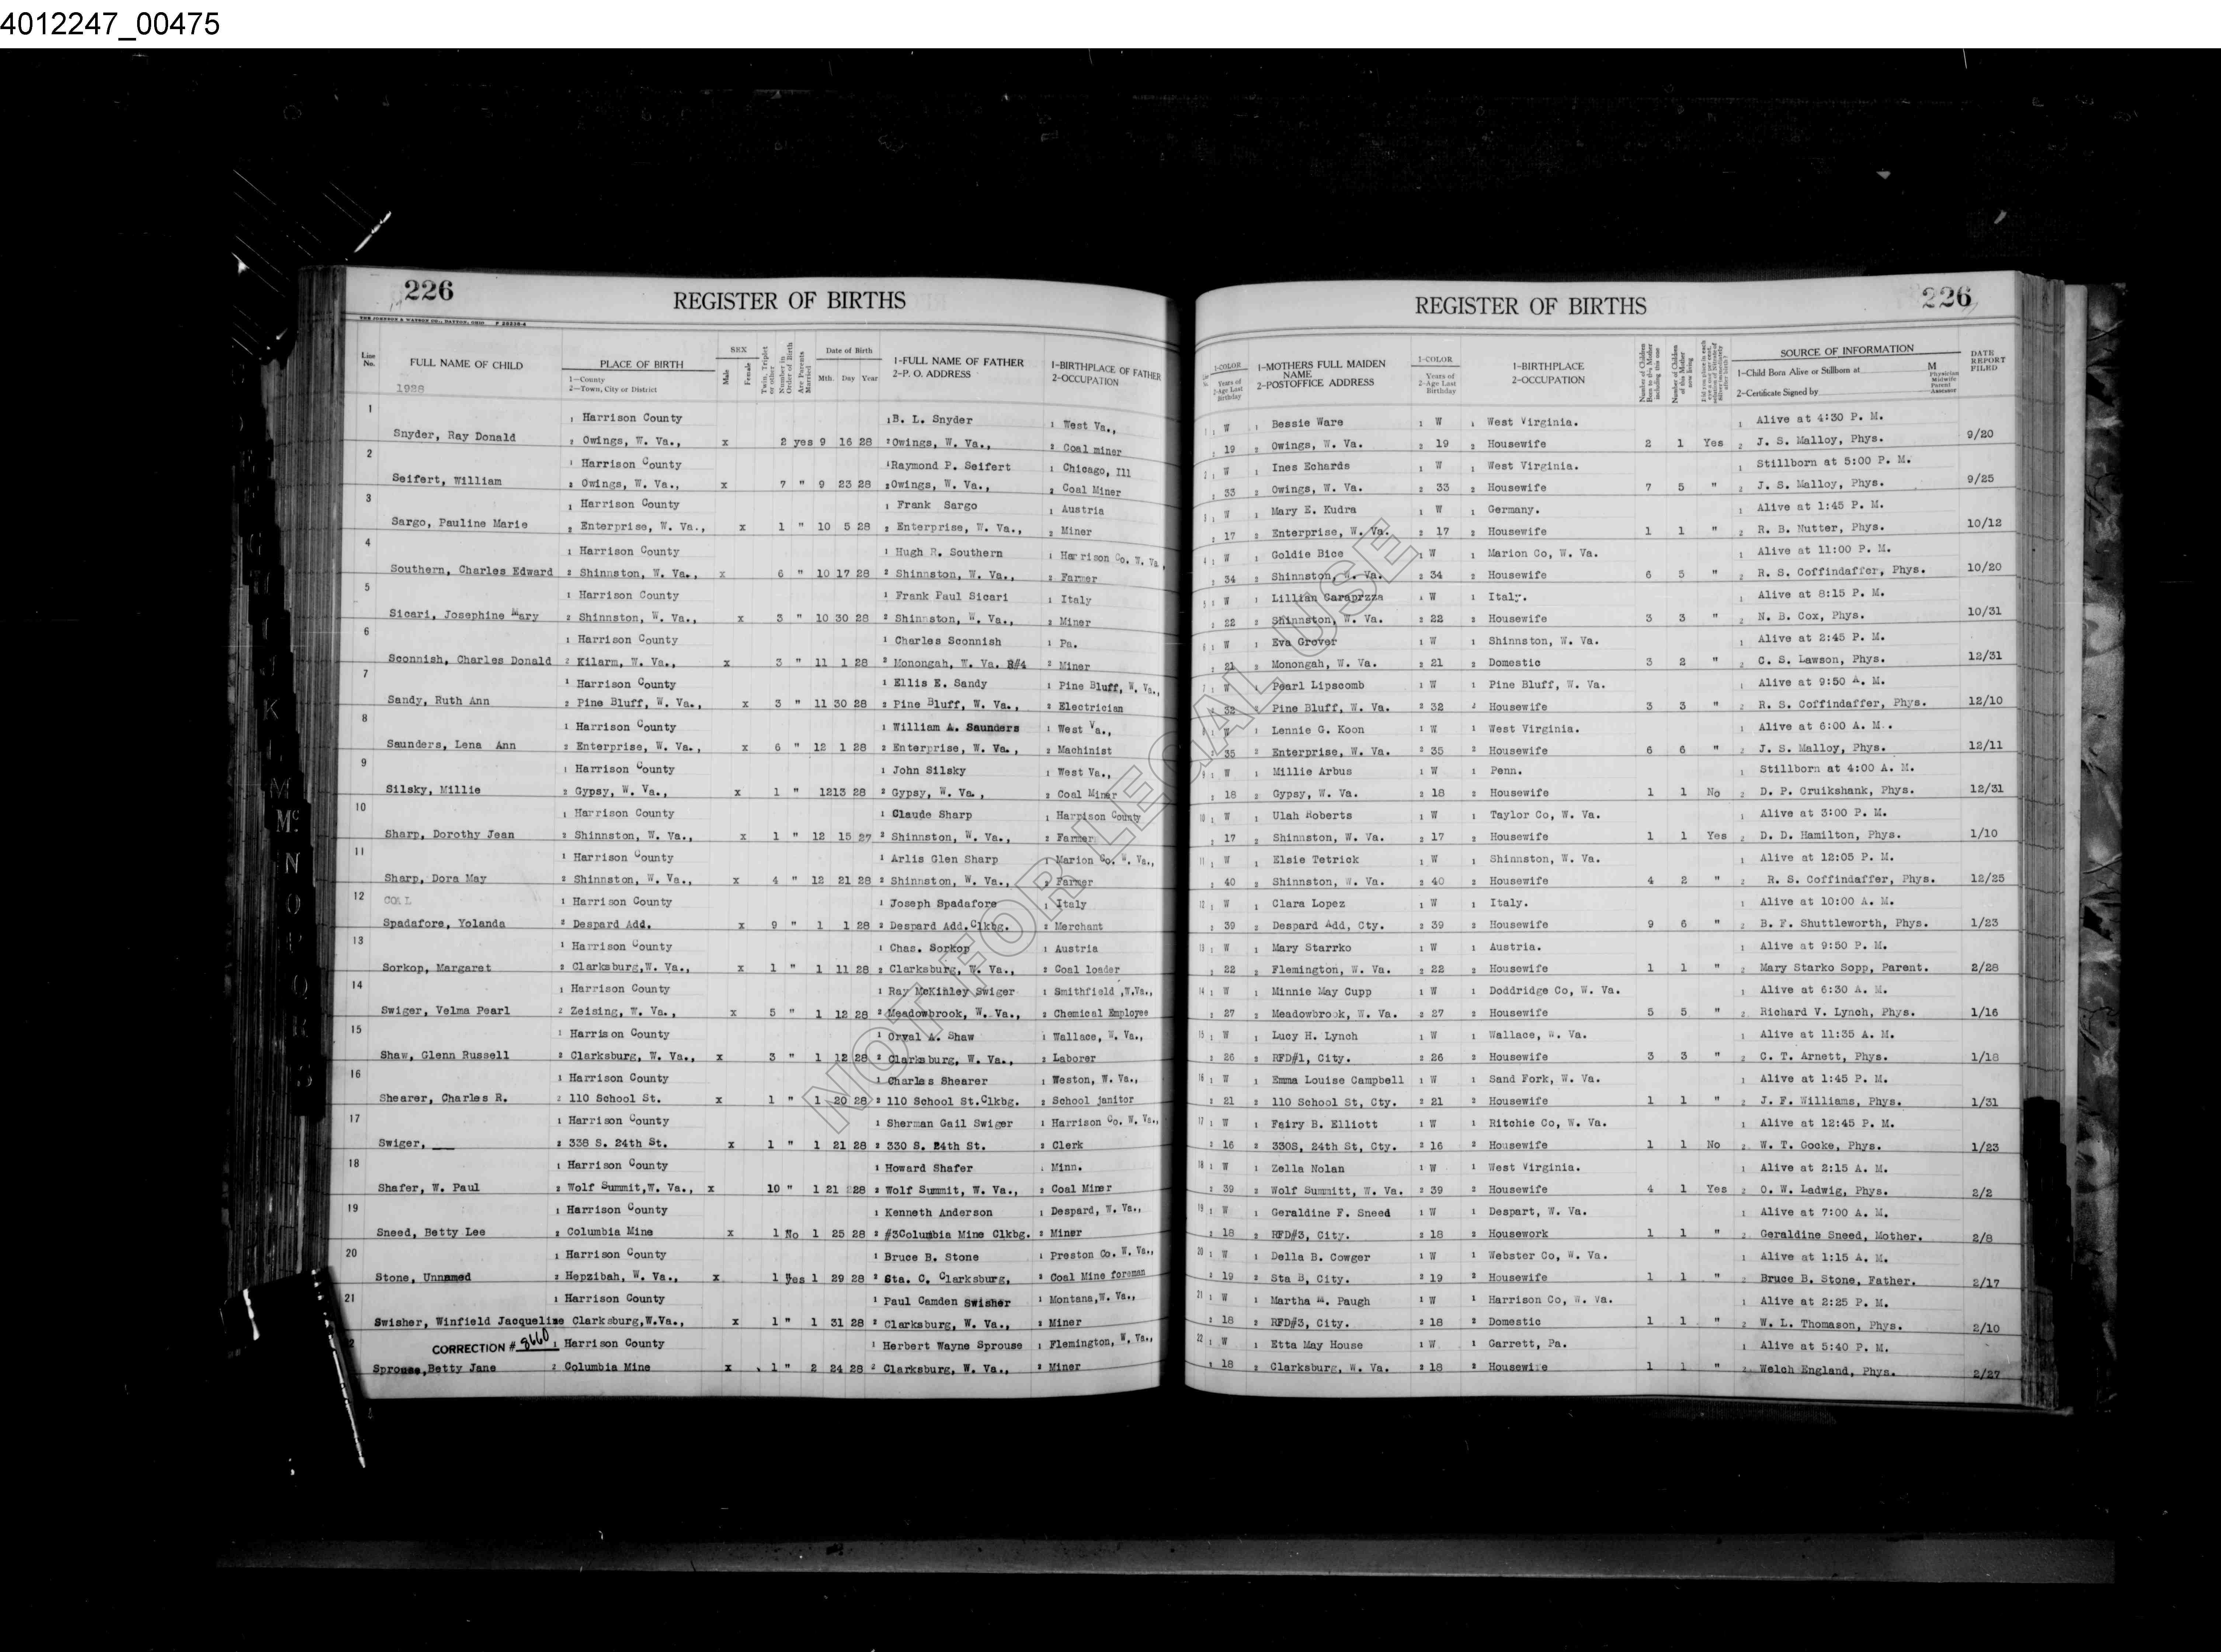 4012247_00475
226
REGISTER OF BIRTHS
THE JOHNSON & WATSON CO., DAYTON, OHIO
Line No.
FULL NAME OF CHILD
1928
PLACE OF BIRTH
1—County
2—Town, City or District
SEX
Male
Female
Twin, Triplet or other
Number in Order of Birth
Are Parents Married
Date of Birth
Mth. Day Year
1-FULL NAME OF FATHER
2-P. O. ADDRESS
1-BIRTHPLACE OF FATHER
2-OCCUPATION
1 1 Harrison County 1 B. L. Snyder 1 West Va.,
Snyder, Ray Donald 2 Owings, W. Va., x 2 yes 9 16 28 2 Owings, W. Va., 2 Coal miner
2 1 Harrison County 1 Raymond P. Seifert 1 Chicago, Ill
Seifert, William 2 Owings, W. Va., x 7 " 9 23 28 2 Owings, W. Va., 2 Coal Miner
3 1 Harrison County 1 Frank Sargo 1 Austria
Sargo, Pauline Marie 2 Enterprise, W. Va., x 1 " 10 5 28 2 Enterprise, W. Va., 2 Miner
4 1 Harrison County 1 Hugh R. Southern 1 Harrison Co. W. Va,
Southern, Charles Edward 2 Shinnston, W. Va., x 6 " 10 17 28 2 Shinnston, W. Va., 2 Farmer
5 1 Harrison County 1 Frank Paul Sicari 1 Italy
Sicari, Josephine Mary 2 Shinnston, W. Va., x 3 " 10 30 28 2 Shinnston, W. Va., 2 Miner
6 1 Harrison County 1 Charles Sconnish 1 Pa.
Sconnish, Charles Donald 2 Kilarm, W. Va., x 3 " 11 1 28 2 Monongah, W. Va. R#4 2 Miner
7 1 Harrison County 1 Ellis E. Sandy 1 Pine Bluff, W. Va.,
Sandy, Ruth Ann 2 Pine Bluff, W. Va., x 3 " 11 30 28 2 Pine Bluff, W. Va., 2 Electrician
8 1 Harrison County 1 William A. Saunders 1 West Va.,
Saunders, Lena Ann 2 Enterprise, W. Va., x 6 " 12 1 28 2 Enterprise, W. Va., 2 Machinist
9 1 Harrison County 1 John Silsky 1 West Va.,
Silsky, Millie 2 Gypsy, W. Va., x 1 " 1213 28 2 Gypsy, W. Va., 2 Coal Miner
10 1 Harrison County 1 Claude Sharp 1 Harrison County
Sharp, Dorothy Jean 2 Shinnston, W. Va., x 1 " 12 15 27 2 Shinnston, W. Va., 2 Farmer
11 1 Harrison County 1 Arlis Glen Sharp 1 Marion Co. W. Va.,
Sharp, Dora May 2 Shinnston, W. Va., x 4 " 12 21 28 2 Shinnston, W. Va., 2 Farmer
12 1 Harrison County 1 Joseph Spadafore 1 Italy
Spadafore, Yolanda 2 Despard Add. x 9 " 1 1 28 2 Despard Add. Clkbg. 2 Merchant
13 1 Harrison County 1 Chas. Sorkop 1 Austria
Sorkop, Margaret 2 Clarksburg,W. Va., x 1 " 1 11 28 2 Clarksburg, W. Va., 2 Coal loader
14 1 Harrison County 1 Ray McKinley Swiger 1 Smithfield ,W.Va.,
Swiger, Velma Pearl 2 Zeising, W. Va., x 5 " 1 12 28 2 Meadowbrook, W. Va., 2 Chemical Employee
15 1 Harrison County 1 Orval A. Shaw 1 Wallace, W. Va.,
Shaw, Glenn Russell 2 Clarksburg, W. Va., x 3 " 1 12 28 2 Clarksburg, W. Va., 2 Laborer
16 1 Harrison County 1 Charles Shearer 1 Weston, W. Va.,
Shearer, Charles R. 2 110 School St. x 1 " 1 20 28 2 110 School St.Clkbg. 2 School janitor
17 1 Harrison County 1 Sherman Gail Swiger 1 Harrison Co. W. Va.,
Swiger, ___ 2 338 S. 24th St. x 1 " 1 21 28 2 330 S. 24th St. 2 Clerk
18 1 Harrison County 1 Howard Shafer 1 Minn.
Shafer, W. Paul 2 Wolf Summit,W. Va., x 10 " 1 21 28 2 Wolf Summit, W. Va., 2 Coal Miner
19 1 Harrison County 1 Kenneth Anderson 1 Despard, W. Va.,
Sneed, Betty Lee 2 Columbia Mine x 1 No 1 25 28 2 #3Columbia Mine Clkbg. 2 Miner
20 1 Harrison County 1 Bruce B. Stone 1 Preston Co. W. Va.,
Stone, Unnamed 2 Hepzibah, W. Va., x 1 yes 1 29 28 2 Sta. C. Clarksburg, 2 Coal Mine foreman
21 1 Harrison County 1 Paul Camden Swisher 1 Montana,W. Va.,
Swisher, Winfield Jacqueline Clarksburg,W.Va., x 1 " 1 31 28 2 Clarksburg, W. Va., 2 Miner
CORRECTION # 8660 1 Harrison County 1 Herbert Wayne Sprouse 1 Flemington, W. Va.,
Sprouse,Betty Jane 2 Columbia Mine x 1 " 2 24 28 2 Clarksburg, W. Va., 2 Miner
REGISTER OF BIRTHS
226
1-COLOR
Years of
2-Age Last Birthday
1-MOTHERS FULL MAIDEN NAME
2-POSTOFFICE ADDRESS
1-COLOR
Years of
2-Age Last Birthday
1-BIRTHPLACE
2-OCCUPATION
Number of Children Born to this Mother including this one
Number of Children of this Mother now living
SOURCE OF INFORMATION
1-Child Born Alive or Stillborn at
M
Physician
Midwife
Parent
Assessor
2-Certificate Signed by
DATE REPORT FILED
1 1 W 1 Bessie Ware 1 W 1 West Virginia. 1 Alive at 4:30 P. M.
2 19 2 Owings, W. Va. 2 19 2 Housewife 2 1 Yes 2 J. S. Malloy, Phys. 9/20
2 1 W 1 Ines Echards 1 W 1 West Virginia. 1 Stillborn at 5:00 P. M.
2 33 2 Owings, W. Va. 2 33 2 Housewife 7 5 " 2 J. S. Malloy, Phys. 9/25
3 1 W 1 Mary E. Kudra 1 W 1 Germany. 1 Alive at 1:45 P. M.
2 17 2 Enterprise, W. Va. 2 17 2 Housewife 1 1 " 2 R. B. Nutter, Phys. 10/12
4 1 W 1 Goldie Bice 1 W 1 Marion Co, W. Va. 1 Alive at 11:00 P. M.
2 34 2 Shinnston, W. Va. 2 34 2 Housewife 6 5 " 2 R. S. Coffindaffer, Phys. 10/20
5 1 W 1 Lillian Caraprzza 1 W 1 Italy. 1 Alive at 8:15 P. M.
2 22 2 Shinnston, W. Va. 2 22 2 Housewife 3 3 " 2 N. B. Cox, Phys. 10/31
6 1 W 1 Eva Grover 1 W 1 Shinnston, W. Va. 1 Alive at 2:45 P. M.
2 21 2 Monongah, W. Va. 2 21 2 Domestic 3 2 " 2 C. S. Lawson, Phys. 12/31
7 1 W 1 Pearl Lipscomb 1 W 1 Pine Bluff, W. Va. 1 Alive at 9:50 A. M.
2 32 2 Pine Bluff, W. Va. 2 32 2 Housewife 3 3 " 2 R. S. Coffindaffer, Phys. 12/10
8 1 W 1 Lennie G. Koon 1 W 1 West Virginia. 1 Alive at 6:00 A. M..
2 35 2 Enterprise, W. Va. 2 35 2 Housewife 6 6 " 2 J. S. Malloy, Phys. 12/11
9 1 W 1 Millie Arbus 1 W 1 Penn. 1 Stillborn at 4:00 A. M.
2 18 2 Gypsy, W. Va. 2 18 2 Housewife 1 1 No 2 D. P. Cruikshank, Phys. 12/31
10 1 W 1 Ulah Roberts 1 W 1 Taylor Co, W. Va. 1 Alive at 3:00 P. M.
2 17 2 Shinnston, W. Va. 2 17 2 Housewife 1 1 Yes 2 D. D. Hamilton, Phys. 1/10
11 1 W 1 Elsie Tetrick 1 W 1 Shinnston, W. Va. 1 Alive at 12:05 P. M.
2 40 2 Shinnston, W. Va. 2 40 2 Housewife 4 2 " 2 R. S. Coffindaffer, Phys. 12/25
12 1 W 1 Clara Lopez 1 W 1 Italy. 1 Alive at 10:00 A. M.
2 39 2 Despard Add, Cty. 2 39 2 Housewife 9 6 " 2 B. F. Shuttleworth, Phys. 1/23
13 1 W 1 Mary Starrko 1 W 1 Austria. 1 Alive at 9:50 P. M.
2 22 2 Flemington, W. Va. 2 22 2 Housewife 1 1 " 2 Mary Starko Sopp, Parent. 2/28
14 1 W 1 Minnie May Cupp 1 W 1 Doddridge Co, W. Va. 1 Alive at 6:30 A. M.
2 27 2 Meadowbrook, W. Va. 2 27 2 Housewife 5 5 " 2 Richard V. Lynch, Phys. 1/16
15 1 W 1 Lucy H. Lynch 1 W 1 Wallace, W. Va. 1 Alive at 11:35 A. M.
2 26 2 RFD#1, City. 2 26 2 Housewife 3 3 " 2 C. T. Arnett, Phys. 1/18
16 1 W 1 Emma Louise Campbell 1 W 1 Sand Fork, W. Va. 1 Alive at 1:45 P. M.
2 21 2 110 School St, Cty. 2 21 2 Housewife 1 1 " 2 J. F. Williams, Phys. 1/31
17 1 W 1 Fairy B. Elliott 1 W 1 Ritchie Co, W. Va. 1 Alive at 12:45 P. M.
2 16 2 330S, 24th St, Cty. 2 16 2 Housewife 1 1 No 2 W. T. Gocke, Phys. 1/23
18 1 W 1 Zella Nolan 1 W 1 West Virginia. 1 Alive at 2:15 A. M.
2 39 2 Wolf Summitt, W. Va. 2 39 2 Housewife 4 1 Yes 2 O. W. Ladwig, Phys. 2/2
19 1 W 1 Geraldine F. Sneed 1 W 1 Despart, W. Va. 1 Alive at 7:00 A. M.
2 18 2 RFD#3, City. 2 18 2 Housework 1 1 " 2 Geraldine Sneed, Mother. 2/8
20 1 W 1 Della B. Cowger 1 W 1 Webster Co, W. Va. 1 Alive at 1:15 A. M.
2 19 2 Sta B, City. 2 19 2 Housewife 1 1 " 2 Bruce B. Stone, Father. 2/17
21 1 W 1 Martha M. Paugh 1 W 1 Harrison Co, W. Va. 1 Alive at 2:25 P. M.
2 18 2 RFD#3, City. 2 18 2 Domestic 1 1 " 2 W. L. Thomason, Phys. 2/10
22 1 W 1 Etta May House 1 W 1 Garrett, Pa. 1 Alive at 5:40 P. M.
2 18 2 Clarksburg, W. Va. 2 18 2 Housewife 1 1 " 2 Welch England, Phys. 2/27
NOT FOR LEGAL USE